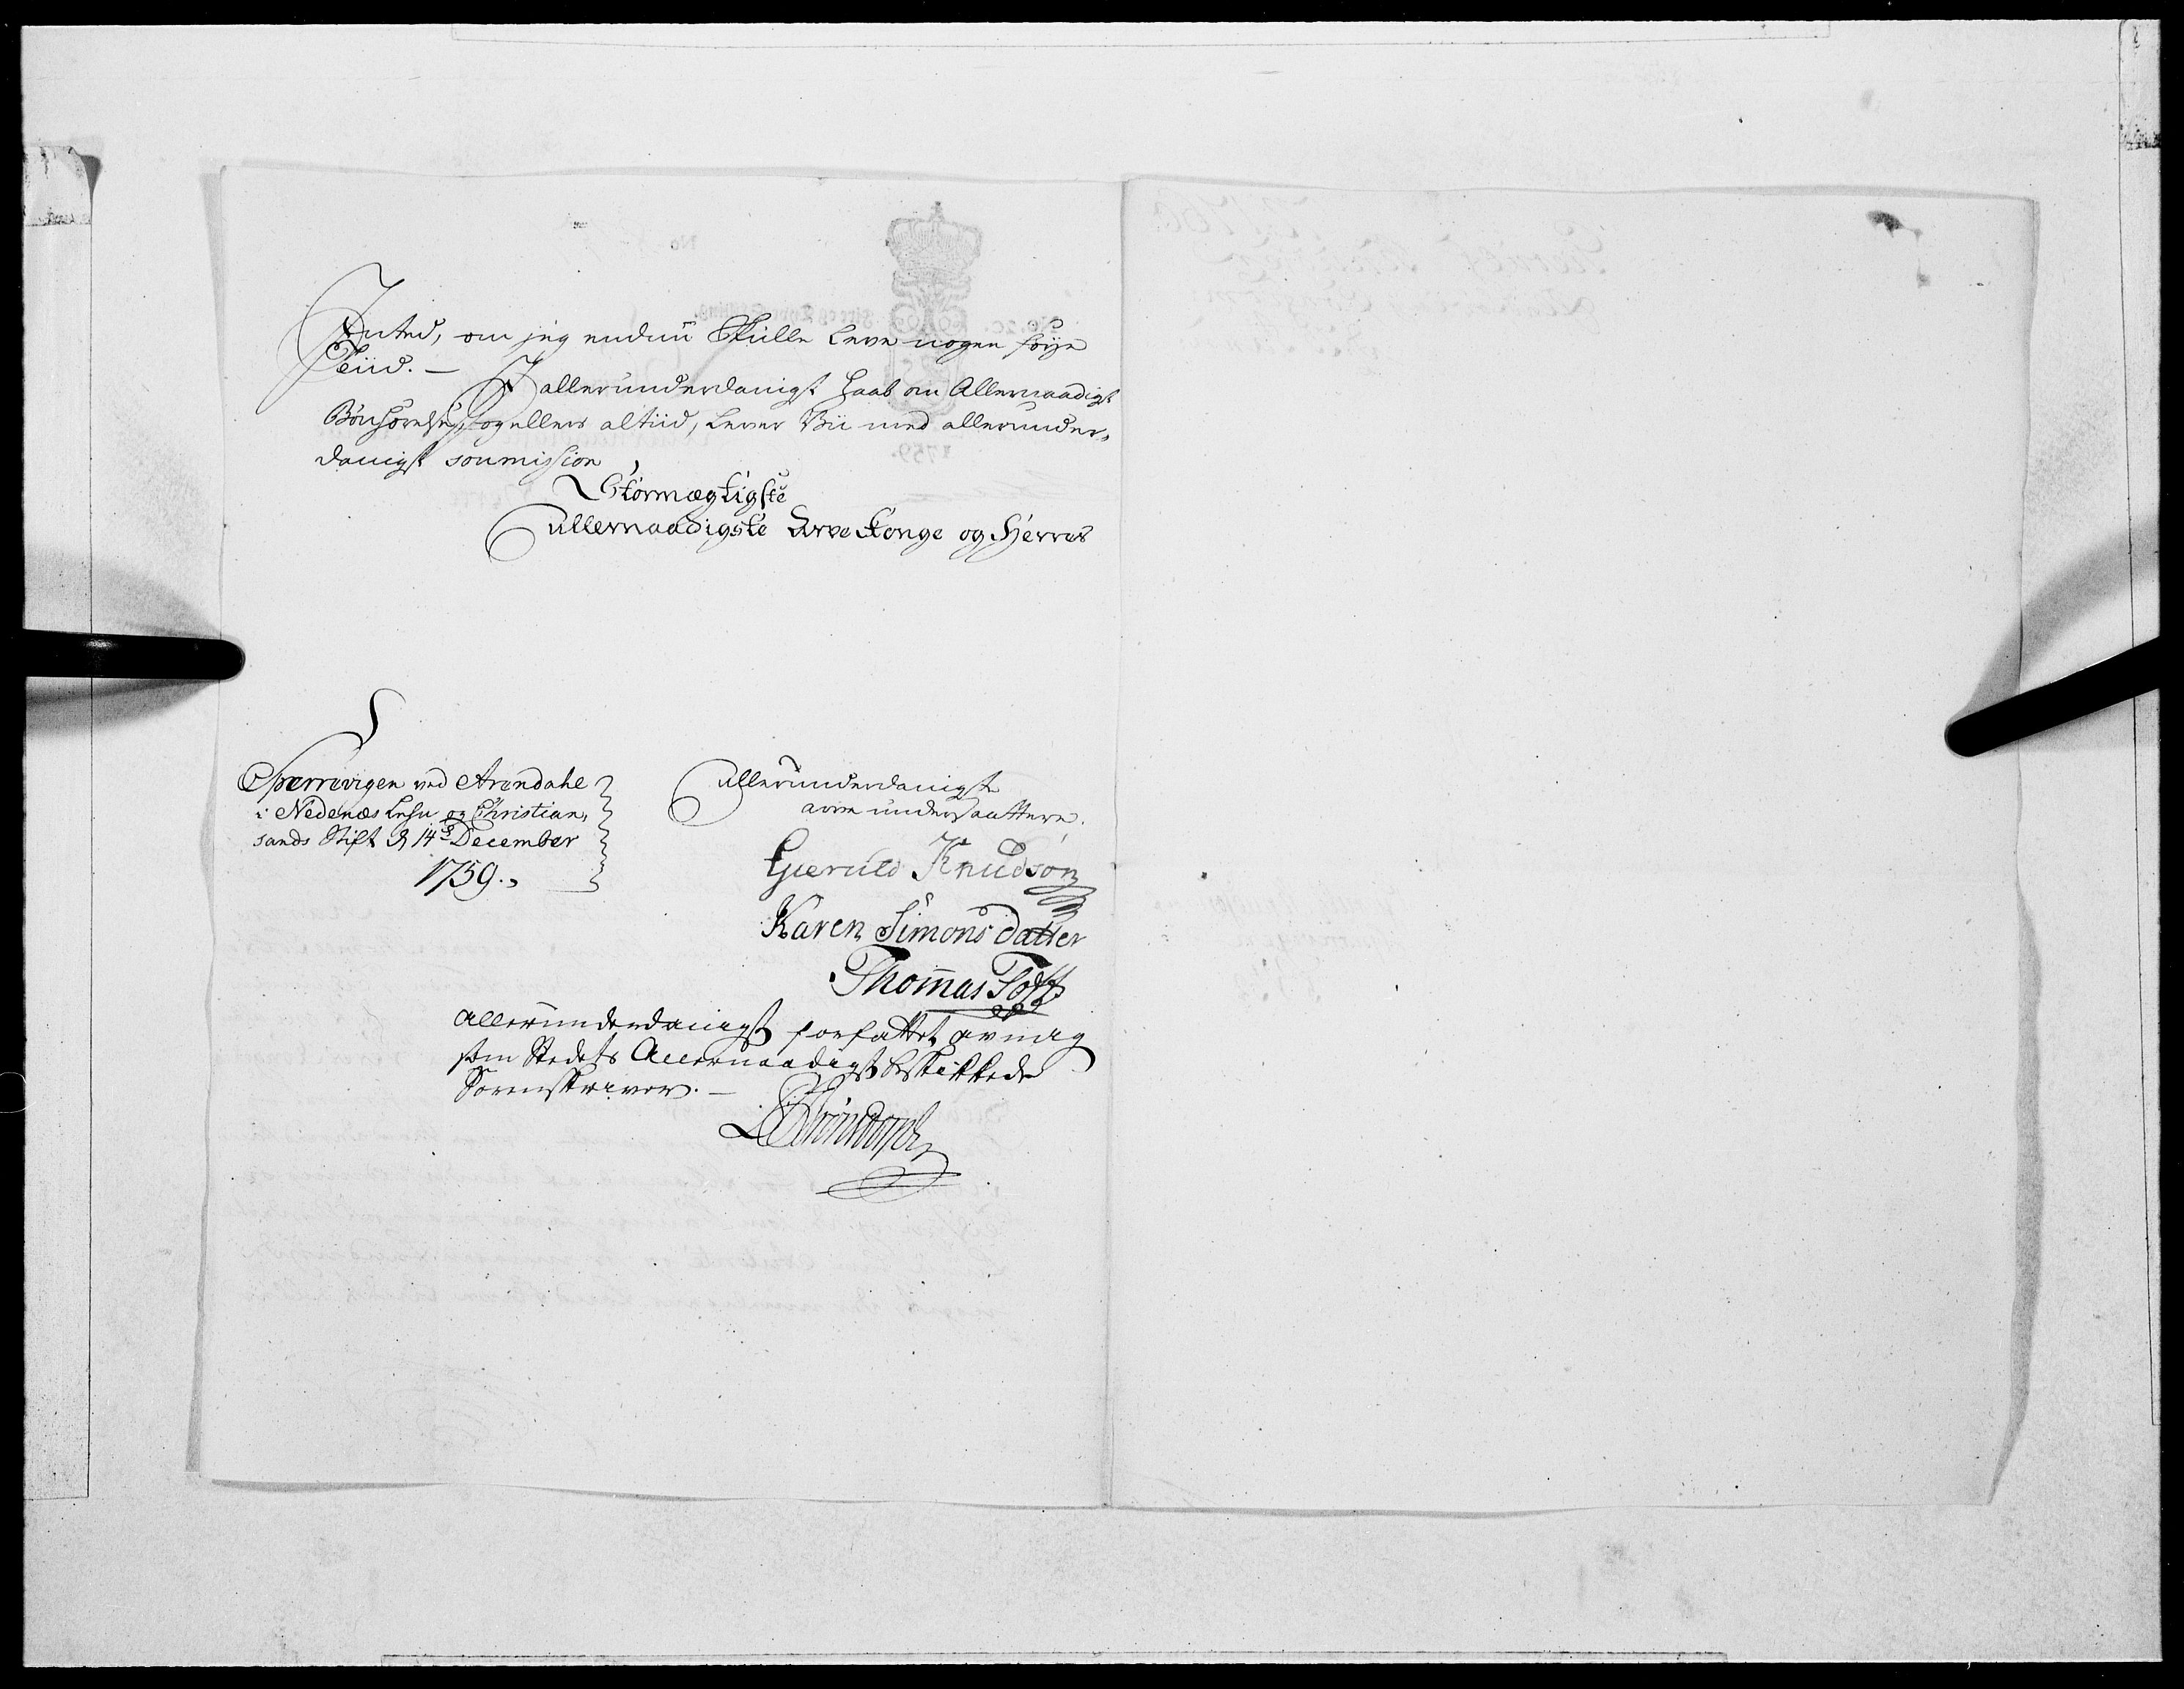 Intet, om jeg endnu Skulle Leve nogenføye
Tiid. —
I allerunderdanigst Haab om Allernaadigst
Bønhørelse, og ellers altiid, Lever Vii med allerunder,
danigst soumission
Stormægtigste
Allernaadigste Arve Konge og Herres
Spærrevigen ved Arendahl
i Nedenæs Lehn og Christian,
sands Stift d 14de December
1759.
Allerunderdanigste
arve undersaattere.
Gieruld Knudsøn
Karen Simons datter
Thom̄as Toft
Allerunderdanigst forfattet av mig
som Stedets Allernaadigst beskikkede
Sorenskriver. —